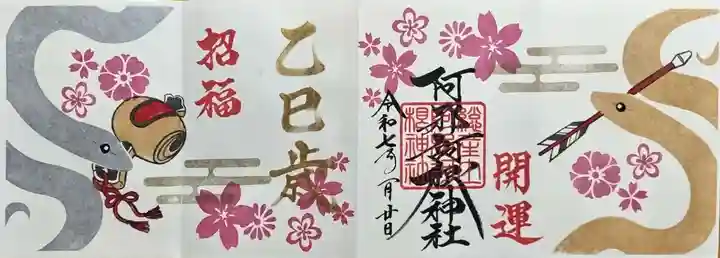 開運
阿邪訶根神社
令和七年一月廿日
乙巳歳
招福